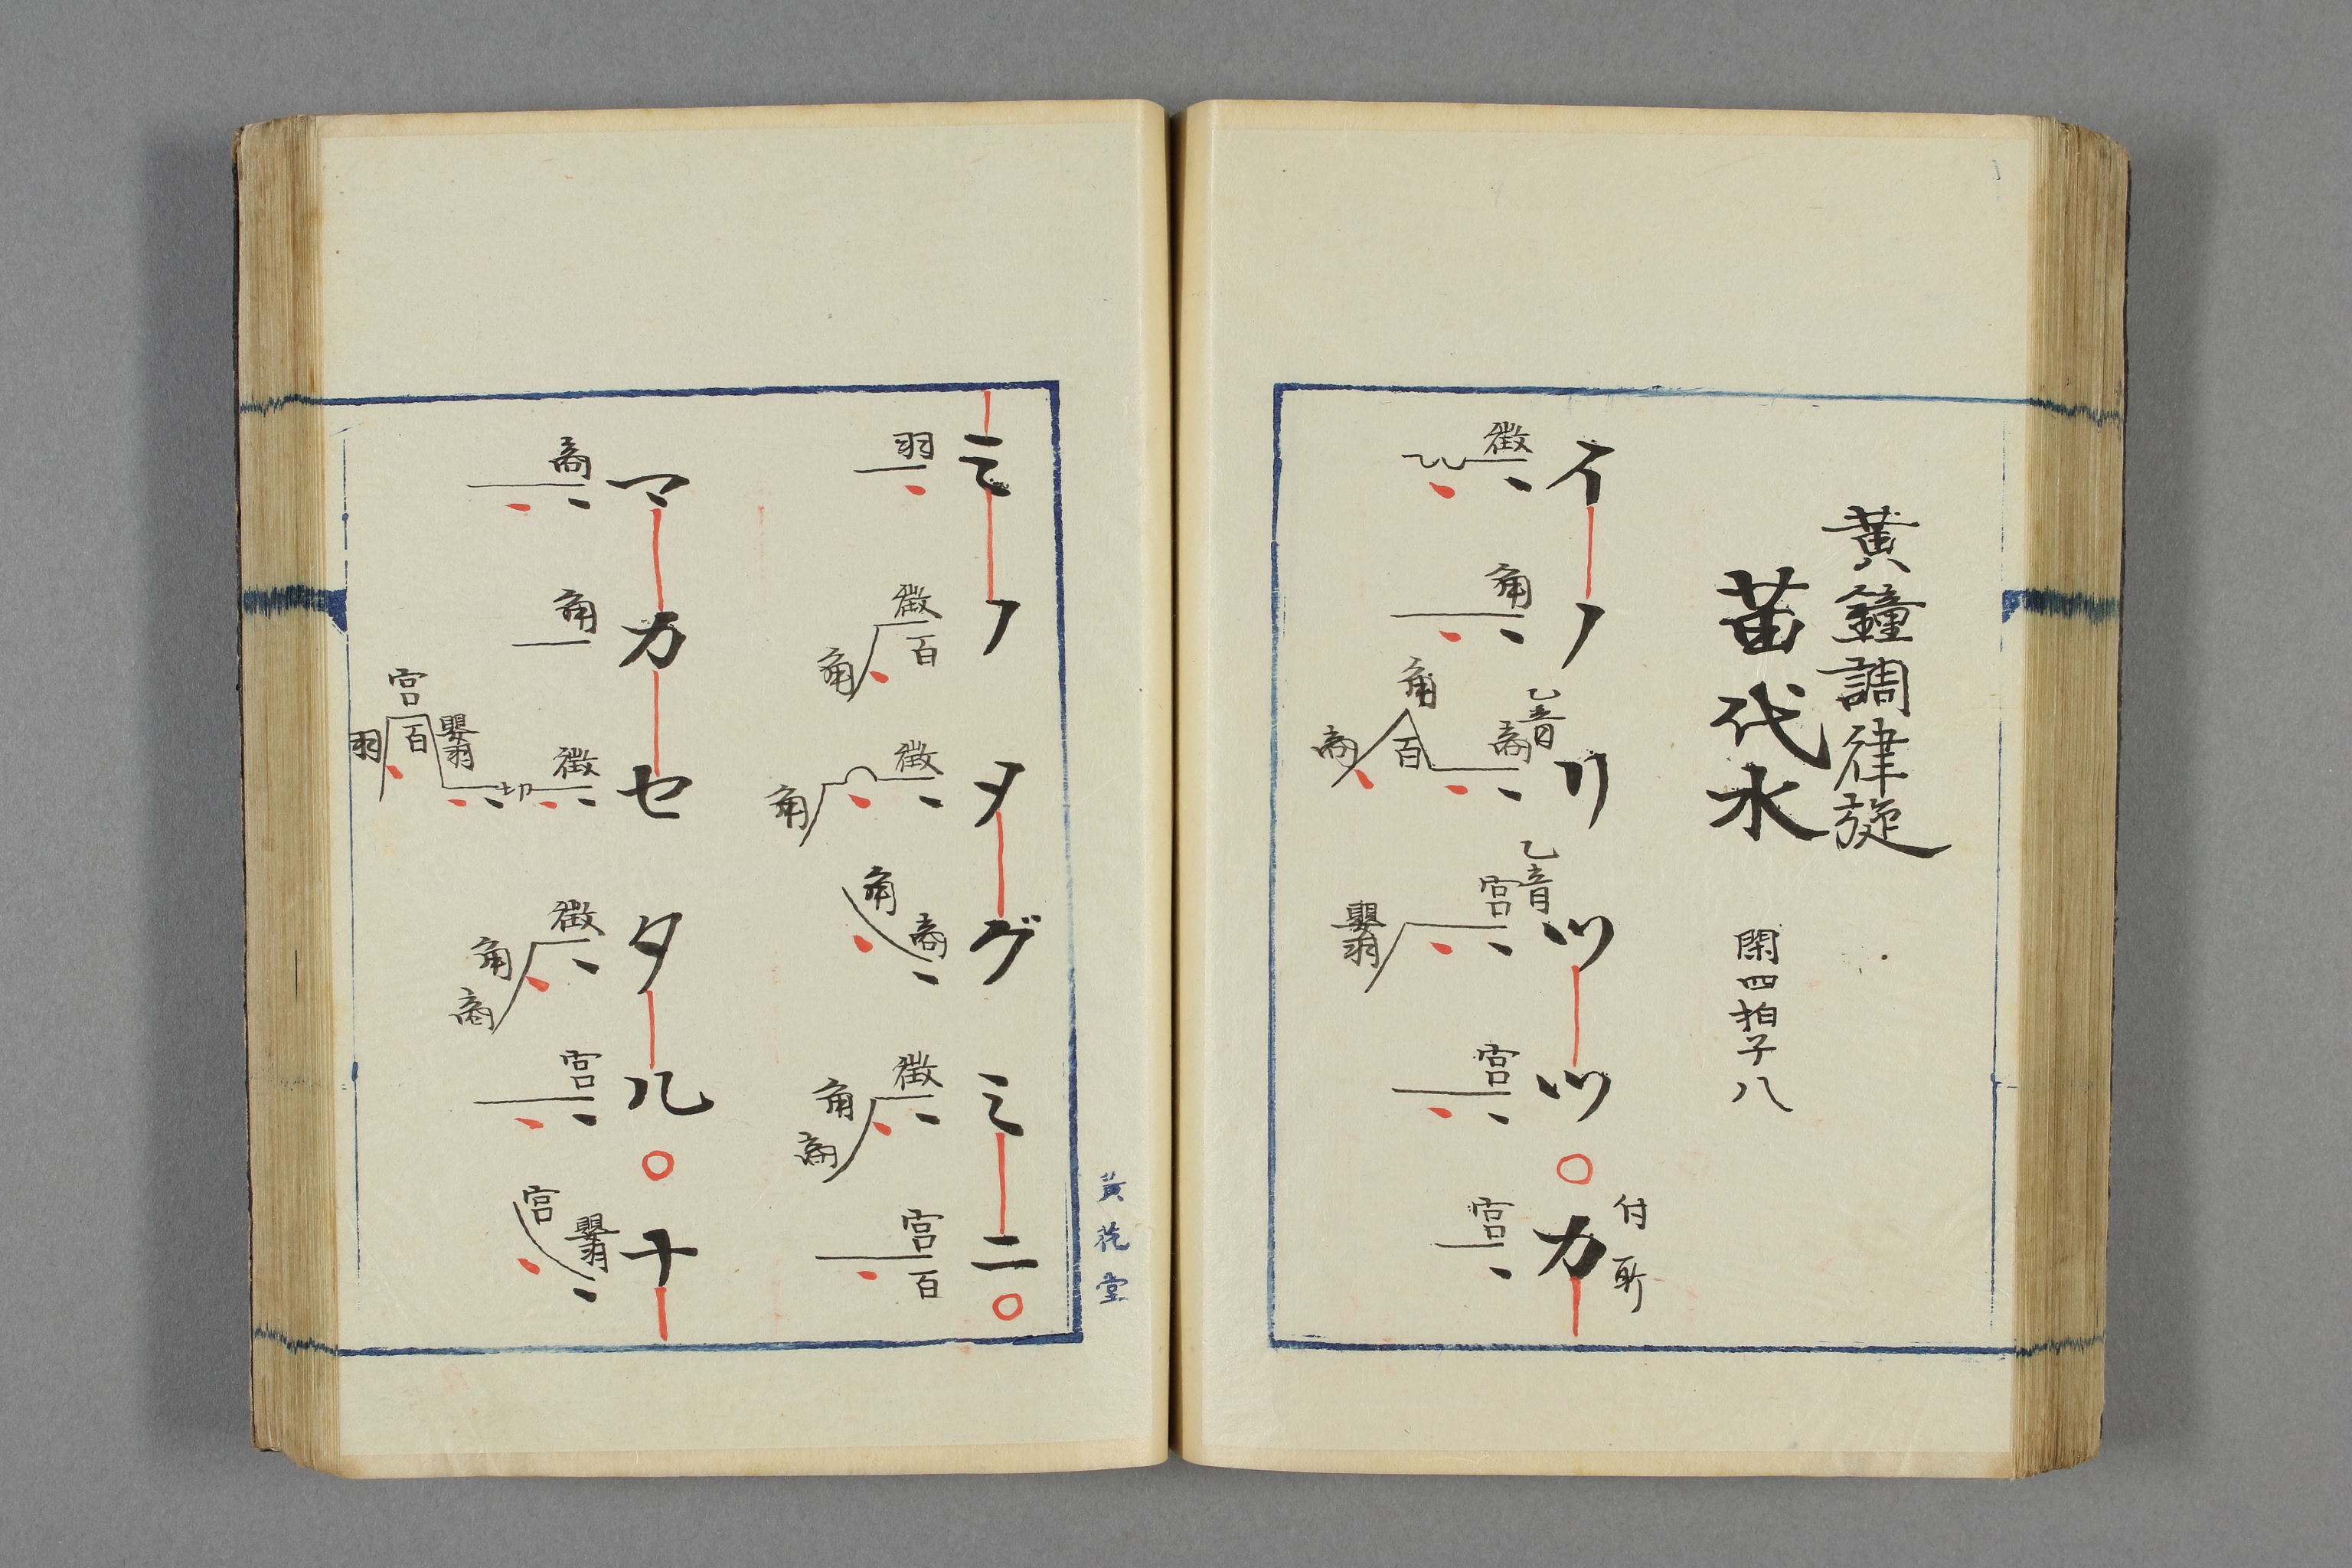 黄鐘調律旋
苗代水 閑四拍子八
イノリツツ○カ
付所
徴 角 乙音 商 角 百 商 乙音 宮 嬰羽 宮 宮
ミノヲグミニ○
羽 徴 百 角 徴 角 商 角 徴 角 商 宮 百
マカセタル○ナ
商 角 徴 切 嬰羽 百 宮 羽 徴 角 商 宮 嬰羽 宮
黄花堂